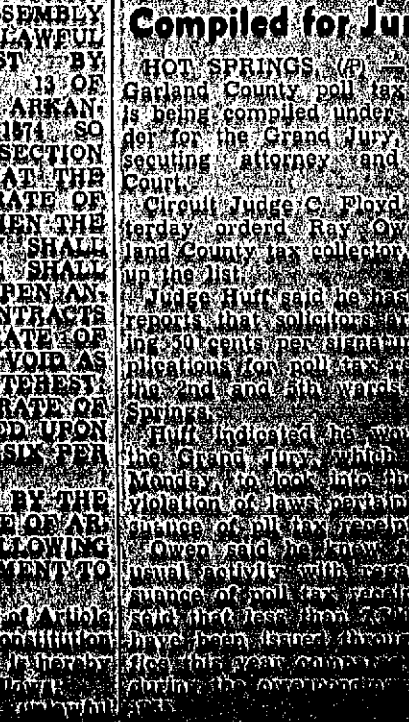 SEMBLY
LAWFUL
ST BY
13 OF
ARKAN-
1874 SO
SECTION
AT THE
RATE OF
MEN THE
SHALL
SHALL
PEN AN-
NTRACTS
ATE OF
VOID AS
TEREST;
RATE OF
ED UPON
SIX PER
BY THE
E OF AR-
LLOWING
MENT TO
of Article
onstitution
is hereby
Compiled for Jur
HOT SPRINGS, (AP) —
Garland County poll tax
is being compiled under
der for the Grand Jury,
secuting attorney and
Court.
Circuit Judge C. Floyd
terday orderd Ray Ow
land County tax collector,
up the list.
Judge Huff said he has
reports that solicitors ar
ing 50 cents per signatur
plications for poll tax re
the 2nd and 5th wards
Springs.
Huff indicated he wou
the Grand Jury, which
Monday, to look into th
violation of laws pertain
suance of pll tax receipt
Owen said he knew
usual activity with rega
suance of poll tax receip
said that less than
have been issued throu
fice this year compare
during the